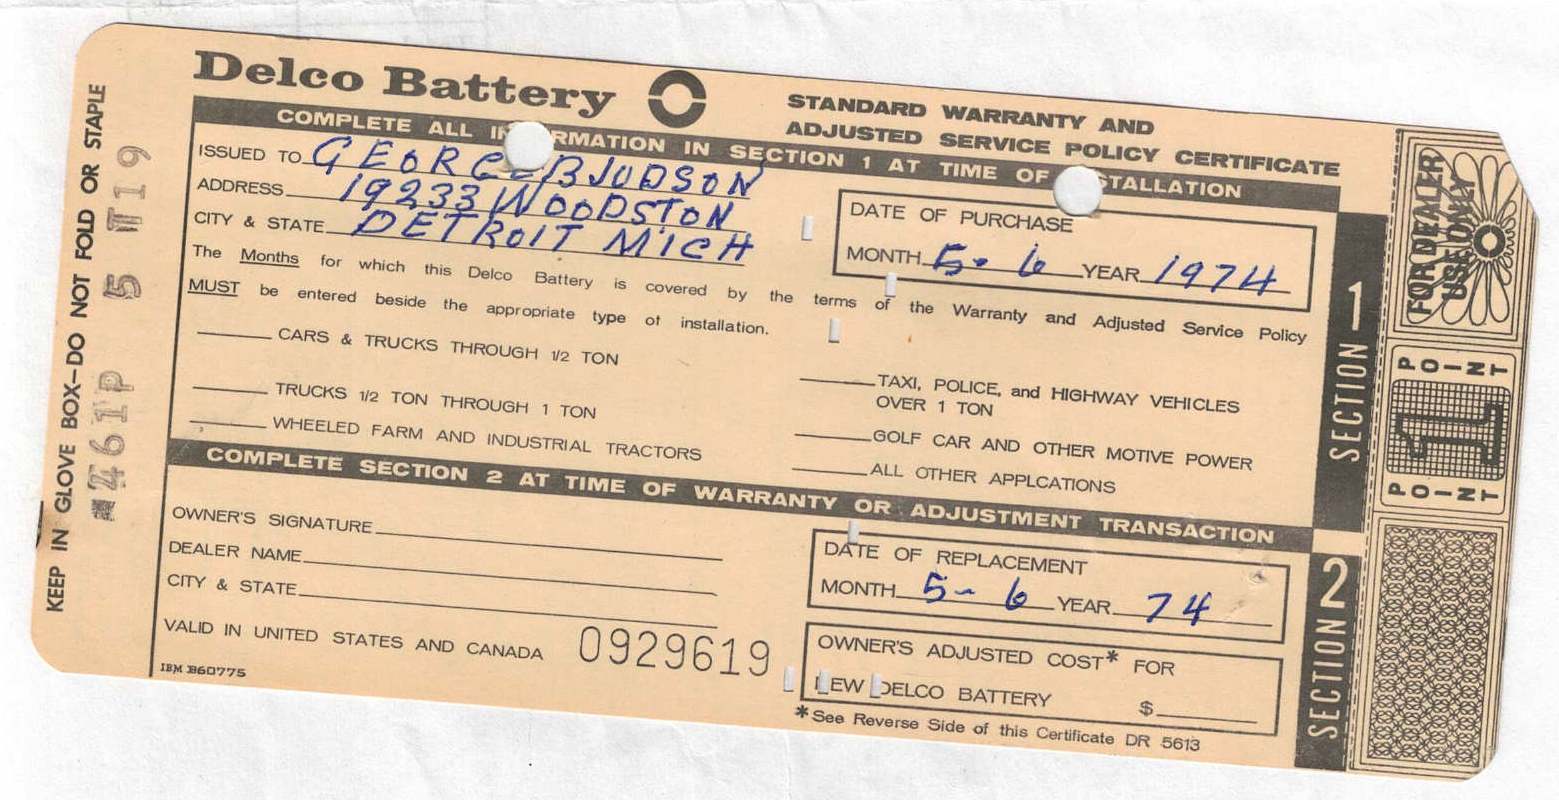 Delco Battery
STANDARD WARRANTY AND
ADJUSTED SERVICE POLICY CERTIFICATE
COMPLETE ALL INFORMATION IN SECTION 1 AT TIME OF INSTALLATION
ISSUED TO GEORGE B JUDSON
ADDRESS 19233 WOODSTON
CITY & STATE DETROIT MICH
DATE OF PURCHASE
MONTH 5-6 YEAR 1974
The Months for which this Delco Battery is covered by the terms of the Warranty and Adjusted Service Policy
MUST be entered beside the appropriate type of installation.
CARS & TRUCKS THROUGH 1/2 TON
TRUCKS 1/2 TON THROUGH 1 TON
WHEELED FARM AND INDUSTRIAL TRACTORS
TAXI, POLICE, and HIGHWAY VEHICLES
OVER 1 TON
GOLF CAR AND OTHER MOTIVE POWER
ALL OTHER APPLCATIONS
COMPLETE SECTION 2 AT TIME OF WARRANTY OR ADJUSTMENT TRANSACTION
OWNER'S SIGNATURE
DEALER NAME
CITY & STATE
VALID IN UNITED STATES AND CANADA 0929619
IBM B60775
DATE OF REPLACEMENT
MONTH 5-6 YEAR 74
OWNER'S ADJUSTED COST* FOR
NEW DELCO BATTERY $
*See Reverse Side of this Certificate DR 5613
KEEP IN GLOVE BOX-DO NOT FOLD OR STAPLE
461P 5 T19
SECTION 1
SECTION 2
FOR DEALER
USE ONLY
POINT
1
POINT